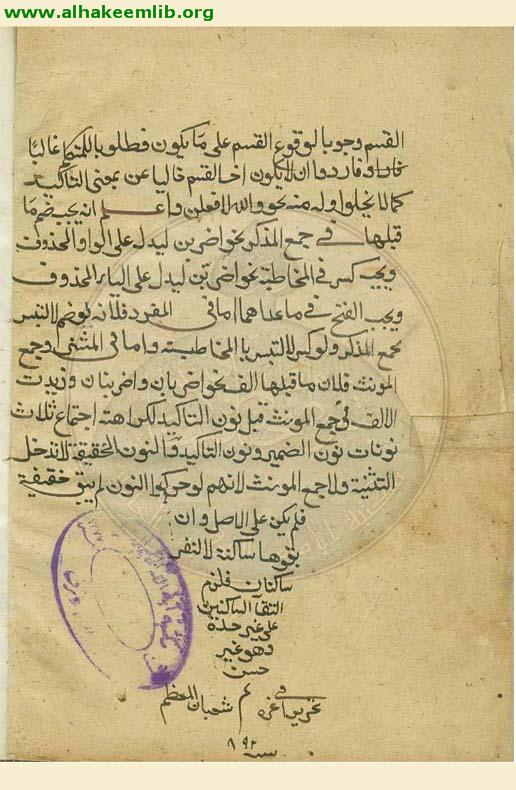 www.alhakeemlib.org
القسم وجوبا لوقوع القسم على ما يكون مطلوبا للمتكلم غالبا
فارادوا ان لا يكون اخر القسم خاليا عن معنى التاكيد
كما لا يخلوا وله منه نحو والله لافعلن واعلم انه يجب ضم ما
قبلها في جمع المذكر نحو اضربن ليدل على الواو المحذوف
ويجب كسر في المخاطبة نحو اضربن ليدل على الياء المحذوف
ويجب الفتح في ما عداهما اما في المفرد فلانه لو ضم لالتبس
بجمع المذكر ولو كسر لالتبس بالمخاطبة واما في المثنى وجمع
المونث فلان ما قبلها الف نحو اضربان واضربنان وزيدت
الالف في جمع المونث قبل نون التاكيد لكراهة اجتماع ثلاث
نونات نون الضمير ونون التاكيد والنون الخفيفة لا تدخل
التثنية ولا جمع المونث لانهم لو حركوا النون لم يبق خفيفة
فلم يكن على الاصل وان
بقوها ساكنة لالتقى
ساكنان فلزم
التقا الساكنين
على غير حده
وهو غير
حسن
في غره شعبان المعظم
٨٩٢